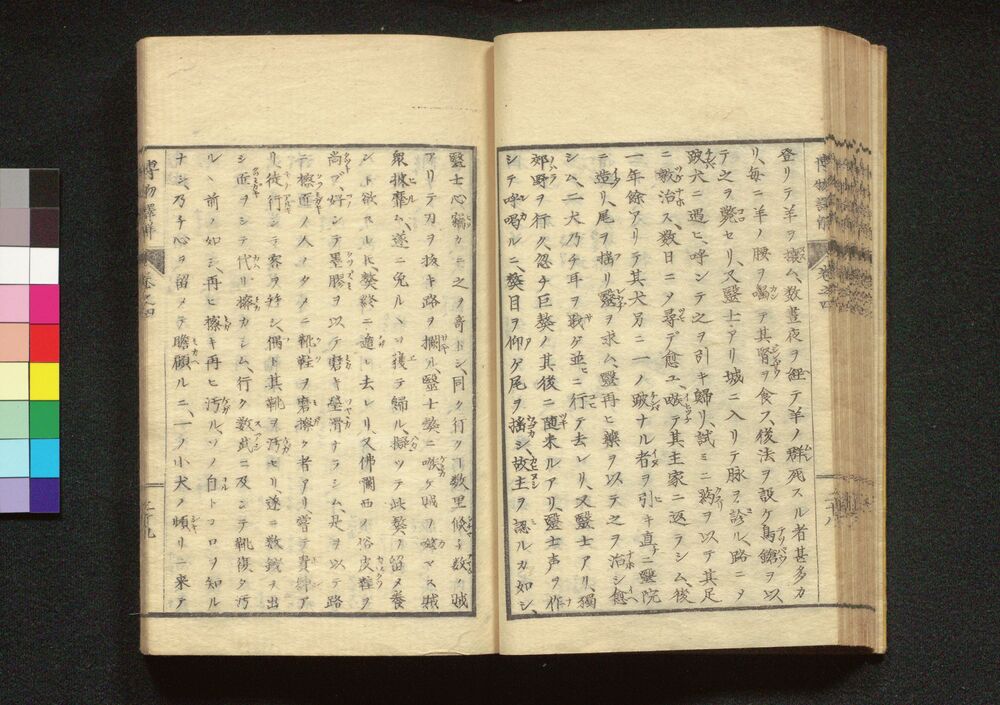 登リテ羊ヲ攘ム、数晝夜ヲ経テ羊ノ群死スル者甚多カ
リ、毎ニ羊ノ腰ヲ噛テ其腎ヲ食フ、後法ヲ設ケ鳥鎗ヲ以
テ之ヲ斃セリ、又醫士アリ城ニ入リテ脉ヲ診ル、路ニメ
跛犬ニ遇ヒ、呼ンテ之ヲ引キ歸リ、試ミニ薬ヲ以テ其足
ニ敷治ス、数日ニメ尋デ愈ユ、畋テ其主家ニ返ラシム、後
一年餘アリテ其犬另ニ一ノ跛ナル者ヲ引キ直ニ醫院
ニ造リ、尾ヲ揺リ醫ヲ求ム、醫再ヒ藥ヲ以テ之ヲ治シ愈
シム、二犬乃チ耳ヲ戢ゲ並ニ行テ去レリ、又醫士アリ、獨
郊野ヲ行ク、忽チ巨獒ノ其後ニ随来ルアリ、醫士声ヲ作
シテ呼喝ルニ、獒目ヲ仰ゲ尾ヲ揺シ、故主ヲ認ルカ如シ、
博物譯解 卷之四 二十八
醫士心竊カニ之ヲ奇トシ、同ク行クヿ数里倏チ数ノ賊
アリテ刀ヲ抜キ路ヲ攔ル、醫士獒ニ嗾ケ賊ヲ噬マス賊
衆披靡ム、遂ニ免ルヽヿヲ獲テ歸ル、擬ツテ此獒ヲ留メ養
ント欲スルに、獒終ニ逸し去レリ、又佛蘭西ノ俗皮鞋ヲ
尚ブ、好ンテ墨膠ヲ以テ磨キ瑩滑ナラシム、是ヲ以テ路
ニ擦匠ノ人ノタメニ靴鞋ヲ磨擦ク者アリ、嘗テ貴紳ア
リ、徒行シテ客ヲ拝シ、偶ト其靴ヲ汚セリ、遂ニ数錢ヲ出
シ匠ヲシテ代リ擦カシム、行ク数武ニ及ンテ靴復タ汚
ルヽ前ノ如シ、再ヒ擦キ再ヒ汚ル、ソノ自トコロヲ知ル
ナシ、乃チ心ヲ留メテ瞻顧ルニ、一ノ小犬ノ頻リニ来テ
博物譯解 卷之四 二十九